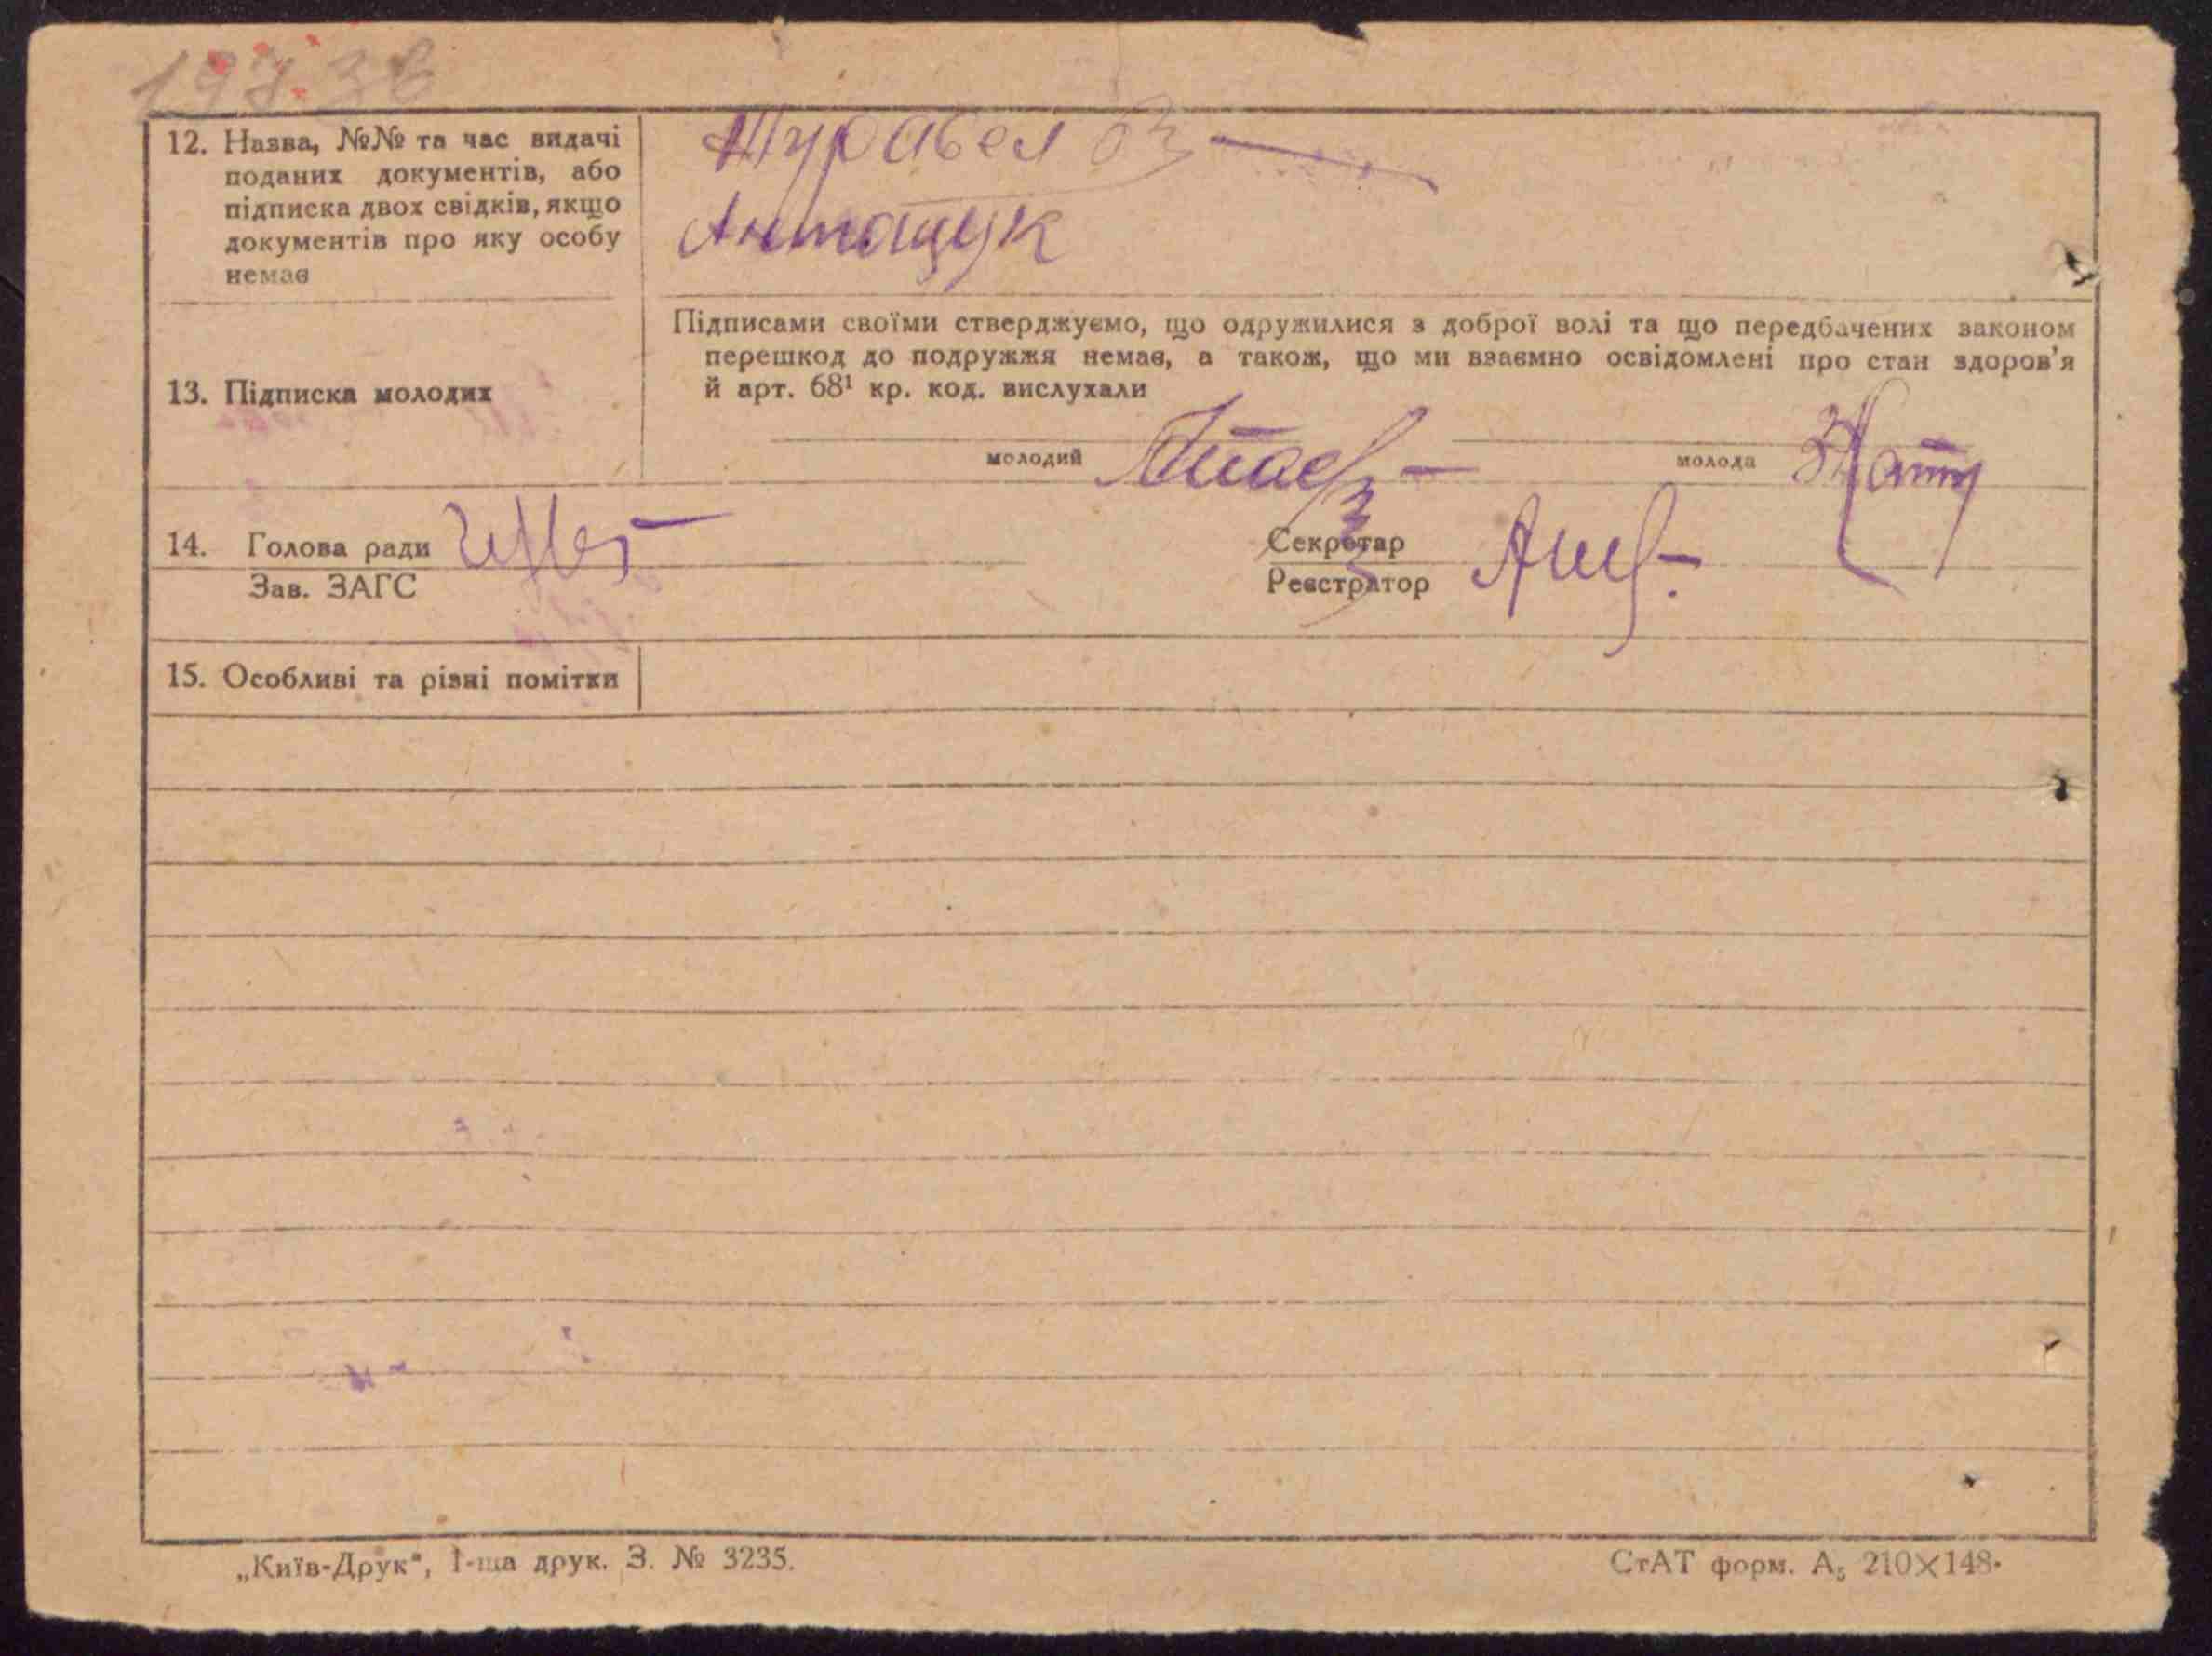 12. Назва, №№ та час видачі
поданих документів, або
підписка двох свідків, якщо
документів про яку особу
немає
Журавел
Антощук
13. Підписка молодих
Підписами своїми стверджуємо, що одружилися з доброї волі та що передбачених законом
перешкод до подружжя немає, а також, що ми взаємно освідомлені про стан здоров'я
й арт. 68¹ кр. код. вислухали
молодий
молода
14. Голова ради
Зав. ЗАГС
Секретар
Реєстратор
15. Особливі та різні помітки
„Київ-Друк", 1-ша друк. З. № 3235.
СтАТ форм. А₅ 210×148.